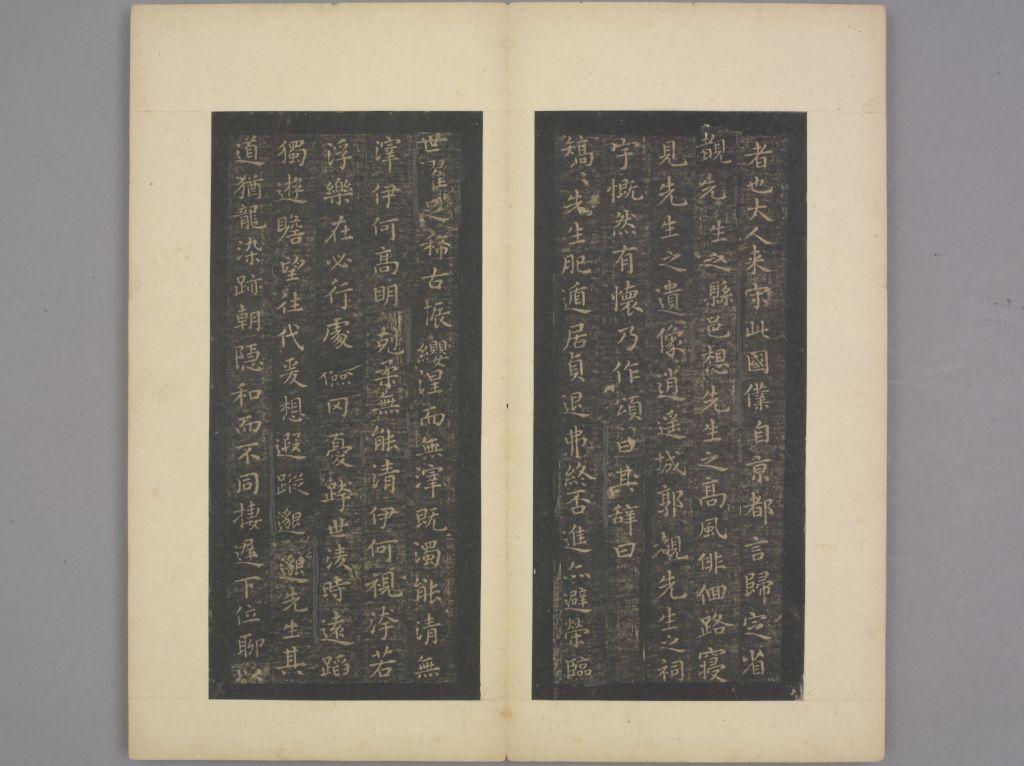 者也大人来守此國僕自京都言歸定省
覩先生之縣邑想先生之高風徘佪路寢
見先生之遺像逍遥城郭覩先生之祠
宇慨然有懷乃作頌曰其辭曰
矯〻先生肥遁居貞退弗終否進亦避榮臨
世濯足稀古振纓涅而無滓既濁能清無
滓伊何高明克柔無能清伊何視洿若
浮樂在必行處儉罔憂跨世淩時遠蹈
獨遊瞻望往代爰想遐蹤邈邈先生其
道猶龍染跡朝隱和而不同棲遲下位聊以